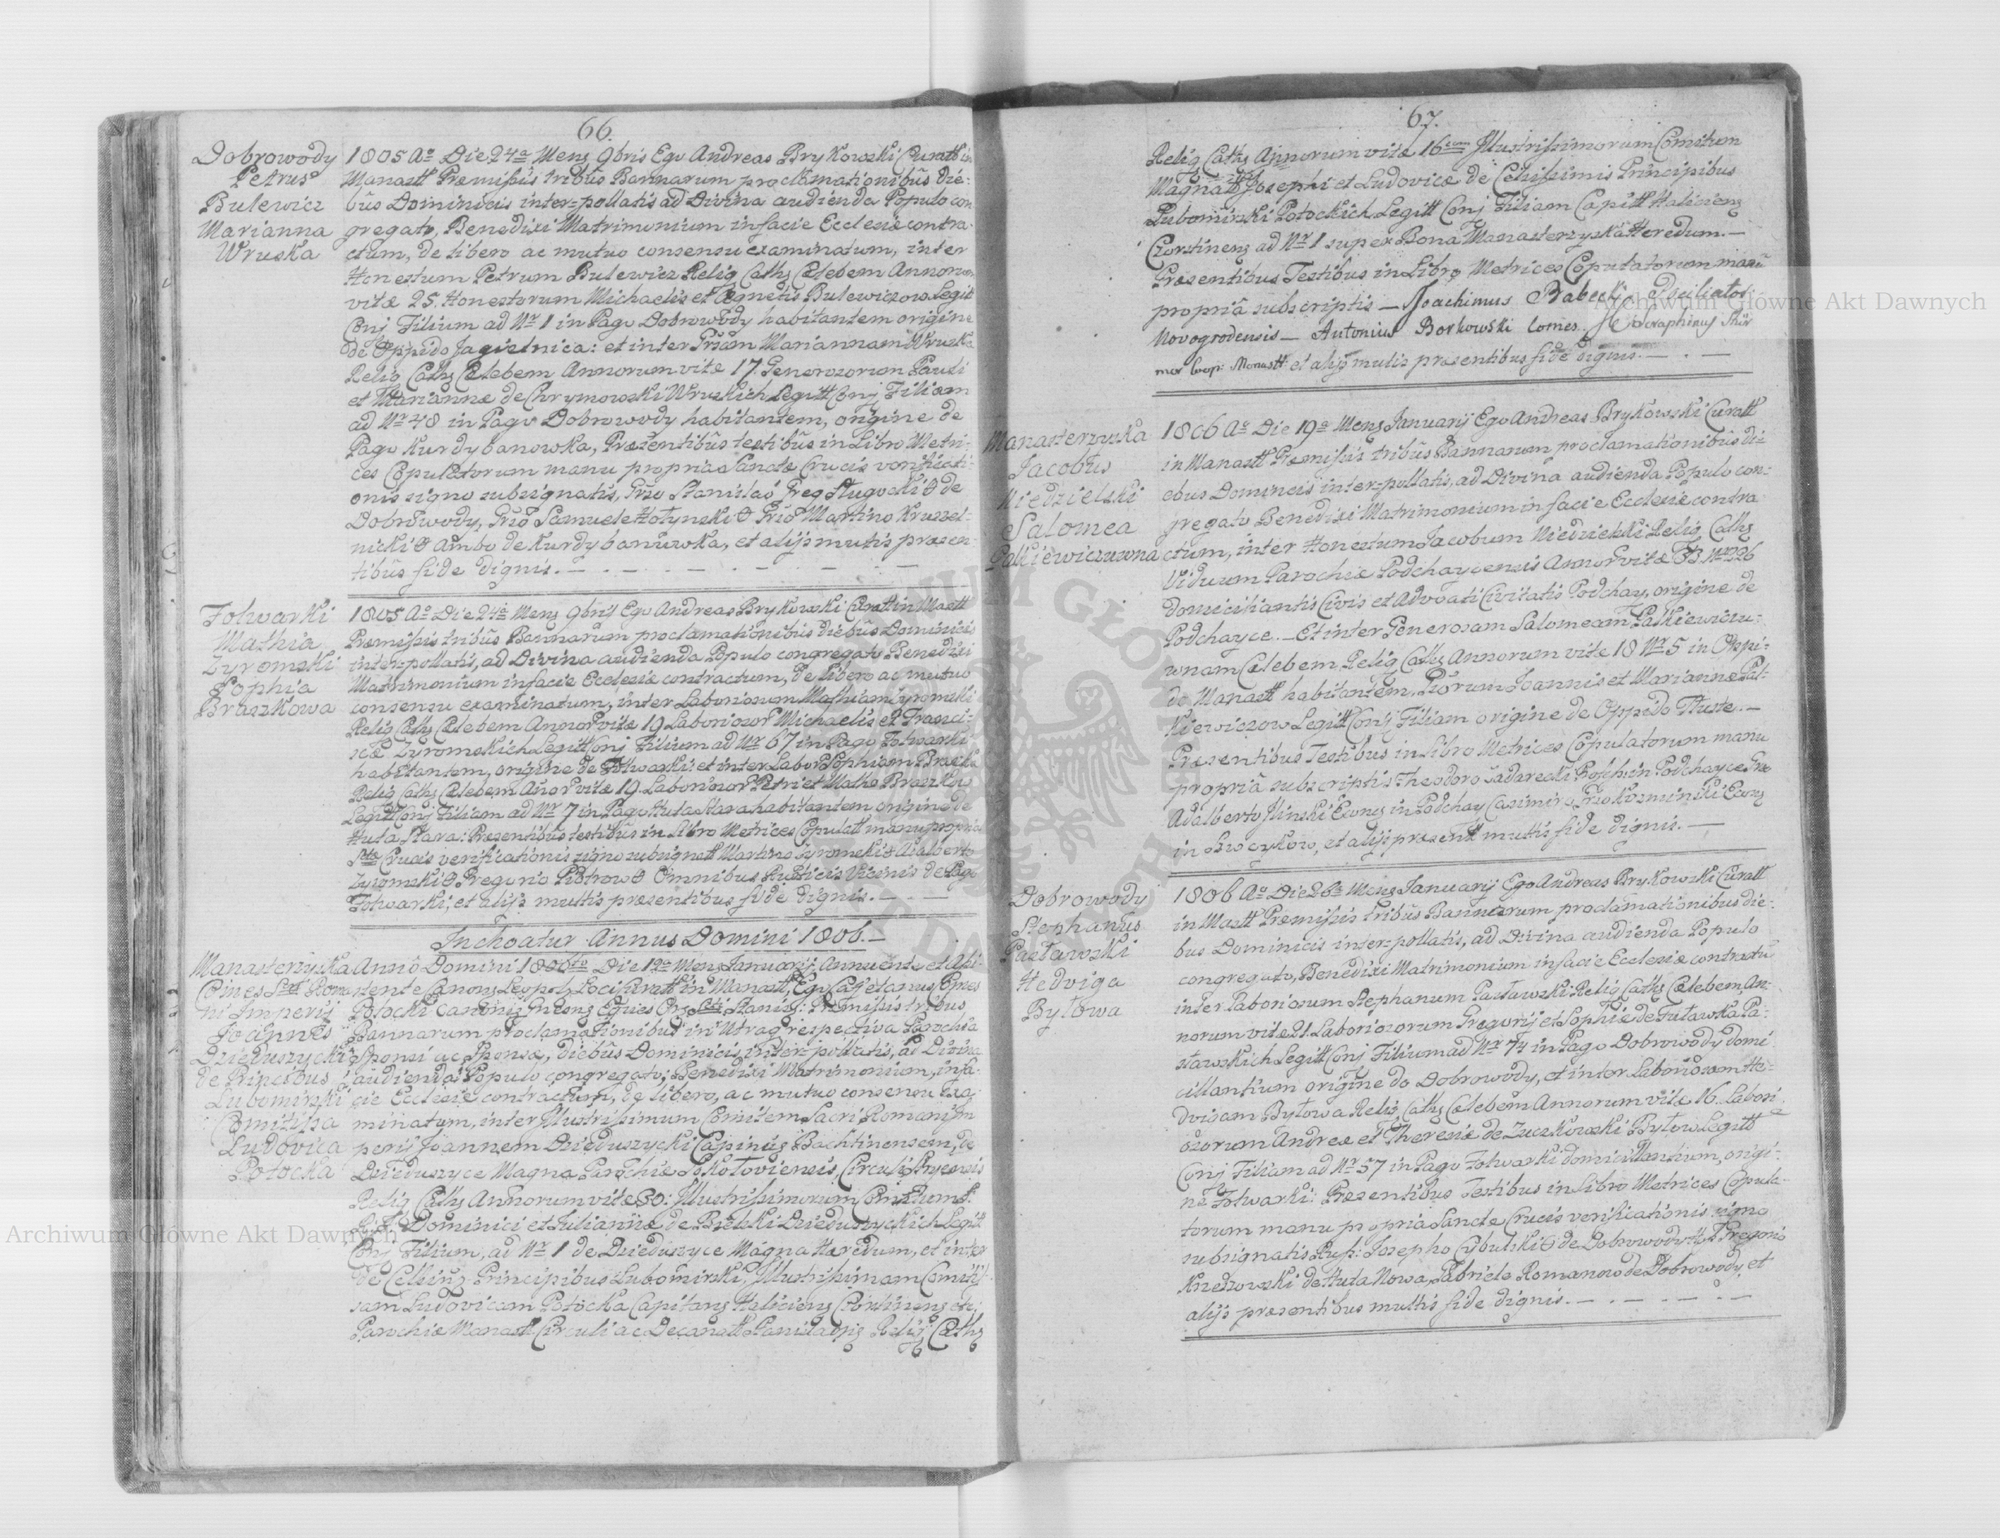 66.
Dobrowody
Petrus
Bulewicz
Marianna
Wruska
1805 Ao Die 24a Mens 9bris Ego Andreas Brykowski Curatt in
Manastt Præmissis tribus Bannarum proclamationibus die-
bus Dominicis inter-pollatis ad Divina audienda Populo con
gregato, Benedixi Matrimonium in facie Ecclesiæ contra-
ctum, de libero ac mutuo consensu examinatum, inter
Honestum Petrum Bulewicz Relig Caths Cælebem Annorum
vitæ 25. Honestorum Michaelis et Agnetis Bulewiczow Legitt
Conj Filium ad Nr 1 in Pago Dobrowody habitantem origine
de Oppido Jagielnica: et inter Mariannam Wruska
Relig Caths Cælebem Annorum vitæ 17. Generosorum Pauli
et Mariannæ de Chrymowski Wruskich Legitt Conj Filiam
ad Nr 48 in Pago Dobrowody habitantem, origine de
Pago Kurdybanowka, Præsentibus testibus in Libro Metri-
ces Copulatorum manu propria Sanctæ Crucis verificati-
onis signo subsignatis, Stanislao Ługocki de
Dobrowody, Samuele Hołynski Martino Krussel-
nicki Ambo de Kurdybanuwka, et alijs multis præsen-
tibus fide dignis.
Folwarki
Mathia
Zyromski
Sophia
Braszkowa
1805 Ao Die 24a Mens 9bris Ego Andreas Brykowski Curatt in Mastt
Præmissis tribus Bannarum proclamationibus diebus Dominicis
inter-pollatis, ad Divina audienda Populo congregato Benedixi
Matrimonium in facie Ecclesiæ contractum, de libero ac mutuo
consensu examinatum, inter Laboriosum Mathiam Zyromski
Relig Caths Cælebem Annor vitæ 19 Michaelis et Franci-
scæ Zyromskich Legitt Conj Filium ad Nr 67 in Pago Folwarki
habitantem, origine de Folwarki: et inter Labor Sophiam Braszko
Relig Caths Cælebem Anor vitæ 19 Petri et Braszkow
Legitt Conj Filiam ad Nr 7 in Pago Huta Stara habitantem origine de
Huta Stara: Præsentibus testibus in Libro Metrices Copulatt manu propria
Crucis verificationis signo subsignatt Martino Zyromski Adalberto
Zyromski Gregorio Piotrow Omnibus Rusticis Vicinis de Pago
Folwarki, et alijs multis præsentibus fide dignis.
Inchoatur Annus Domini 1806.
Manasterzyska
Comes Roma
ni Imperij
Joannes
Dzieduszycki
de Principibus
Lubomirski
Comitissa
Ludovica
Potocka
Anno Domini 1806to Die 19a Mens Januarij Annuente et
Canons Leopol Loci Curatt in Manastt, Ego Cajetanus Comes
Potocki Canonis Gnesns Eques Stanisl: Præmissis tribus
Bannarum proclamationibus in Utraq respectiva Parochia
Sponsi ac Sponsæ, diebus Dominicis inter-pollatis, ad Divina
audienda Populo congregato; Benedixi Matrimonium, in fa-
cie Ecclesiæ contractum, de libero, ac mutuo consensu Exa-
minatum, inter Illustrissimum Comitem Sacri Romani Im
perij Joannem Dzieduszycki Bachtinensem, de
Dzieduszyce Magna, Parochiæ Sokołoviensis, Circuli Stryensis
Relig Caths Annorum vitæ 30: Illustrissimorum Comitum
Dominici et Juliannæ de Bielski Dzieduszyckich Legitt
Conj Filium, ad Nr 1 de Dzieduszyce Magna Hæredum, et inter
de Celsiss Principibus Lubomirski, Illustrissimam Comitis-
sam Ludovicam Potocka Capitans Haliciens Czortinens etc:
Parochiæ Manastt Circuli ac Decanatt Stanislavs Relig Caths
67.
Relig Caths Annorum vitæ 16cim Illustrissimorum Comitum
Magnatt Josephi et Ludovicæ de Celsissimis Principibus
Lubomirski Potockich Legitt Conj Filiam Capitt Haliciens
Czortinens ad Nr 1 super Bona Manasterzyska Hæredum.
Præsentibus Testibus in Libro Metrices Copulatorum manu
propria subscriptis — Joachimus Babecki
Novogrodensis — Antonius Borkowski Comes. Seraphinus
Manastt et alijs multis præsentibus fide dignis.
Manasterzyska
Jacobus
Niedzielski
Salomea
Palkiewiczuwna
1806 Ao Die 19a Mens Januarij Ego Andreas Brykowski Curatt
in Manastt Præmissis tribus Bannarum proclamationibus di
ebus Dominicis inter-pollatis, ad Divina audienda Populo con-
gregato Benedixi Matrimonium in facie Ecclesiæ contra
ctum, inter Honestum Jacobum Niedzielski Relig Caths
Viduum Parochiæ Podhaycensis Annor vitæ 33 Nro 226
domiciliantis Civis et Advocati Civitatis Podhay, origine de
Podhayce. — Et inter Generosam Salomeam Palkiewiczu-
wnam Cælebem Relig Caths Annorum vitæ 18 Nr 5 in Oppi-
do Manastt habitantem, Joannis et Mariannæ Pal-
kiewiczow Legitt Conj Filiam origine de Oppido Tłuste.
Præsentibus Testibus in Libro Metrices Copulatorum manu
propria subscriptis Theodoro Sadarecki in Podhayce
Adalberto Ilinski in Podhay Casimiro Kozminski
in et alijs præsentt multis fide dignis.
Dobrowody
Stephanus
Pasławski
Hedviga
Bytowa
1806 Ao Die 26a Mens Januarij Ego Andreas Brykowski Curatt
in Mastt Præmissis tribus Bannarum proclamationibus die-
bus Dominicis inter-pollatis, ad Divina audienda Populo
congregato, Benedixi Matrimonium in facie Ecclesiæ contractu
inter Laboriosum Stephanum Pasławski Relig Caths Cælebem, An-
norum vitæ 21. Laboriosorum Gregorij et Sophiæ de Tutawka Pa-
sławskich Legitt Conj Filium ad Nr 74 in Pago Dobrowody domi
cillantium origine do Dobrowody, et inter Laboriosam He-
dvigam Bytowa Relig Caths Cælebem Annorum vitæ 16. Labori
osorum Andreæ et Theresiæ de Zuczkowski Bytow Legitt
Conj Filiam ad Nr 57 in Pago Folwarki domicillantium, origi-
ne Folwarki: Præsentibus Testibus in Libro Metrices Copula-
torum manu propria Sanctæ Crucis verificationis signo
subsignatis Josepho Cybulski de Dobrowody Gregorio
de Huta Nowa, Gabriele Romanow de Dobrowody, et
alijs præsentibus multis fide dignis.
Archiwum Główne Akt Dawnych
Archiwum Główne Akt Dawnych
ARCHIWUM GŁÓWNE AKT DAWNYCH